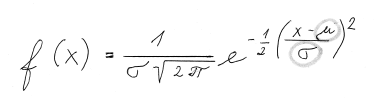 f(x) = \frac{1}{\sigma\sqrt{2\pi}} e^{-\frac{1}{2}\left(\frac{x-\mu}{\sigma}\right)^2}